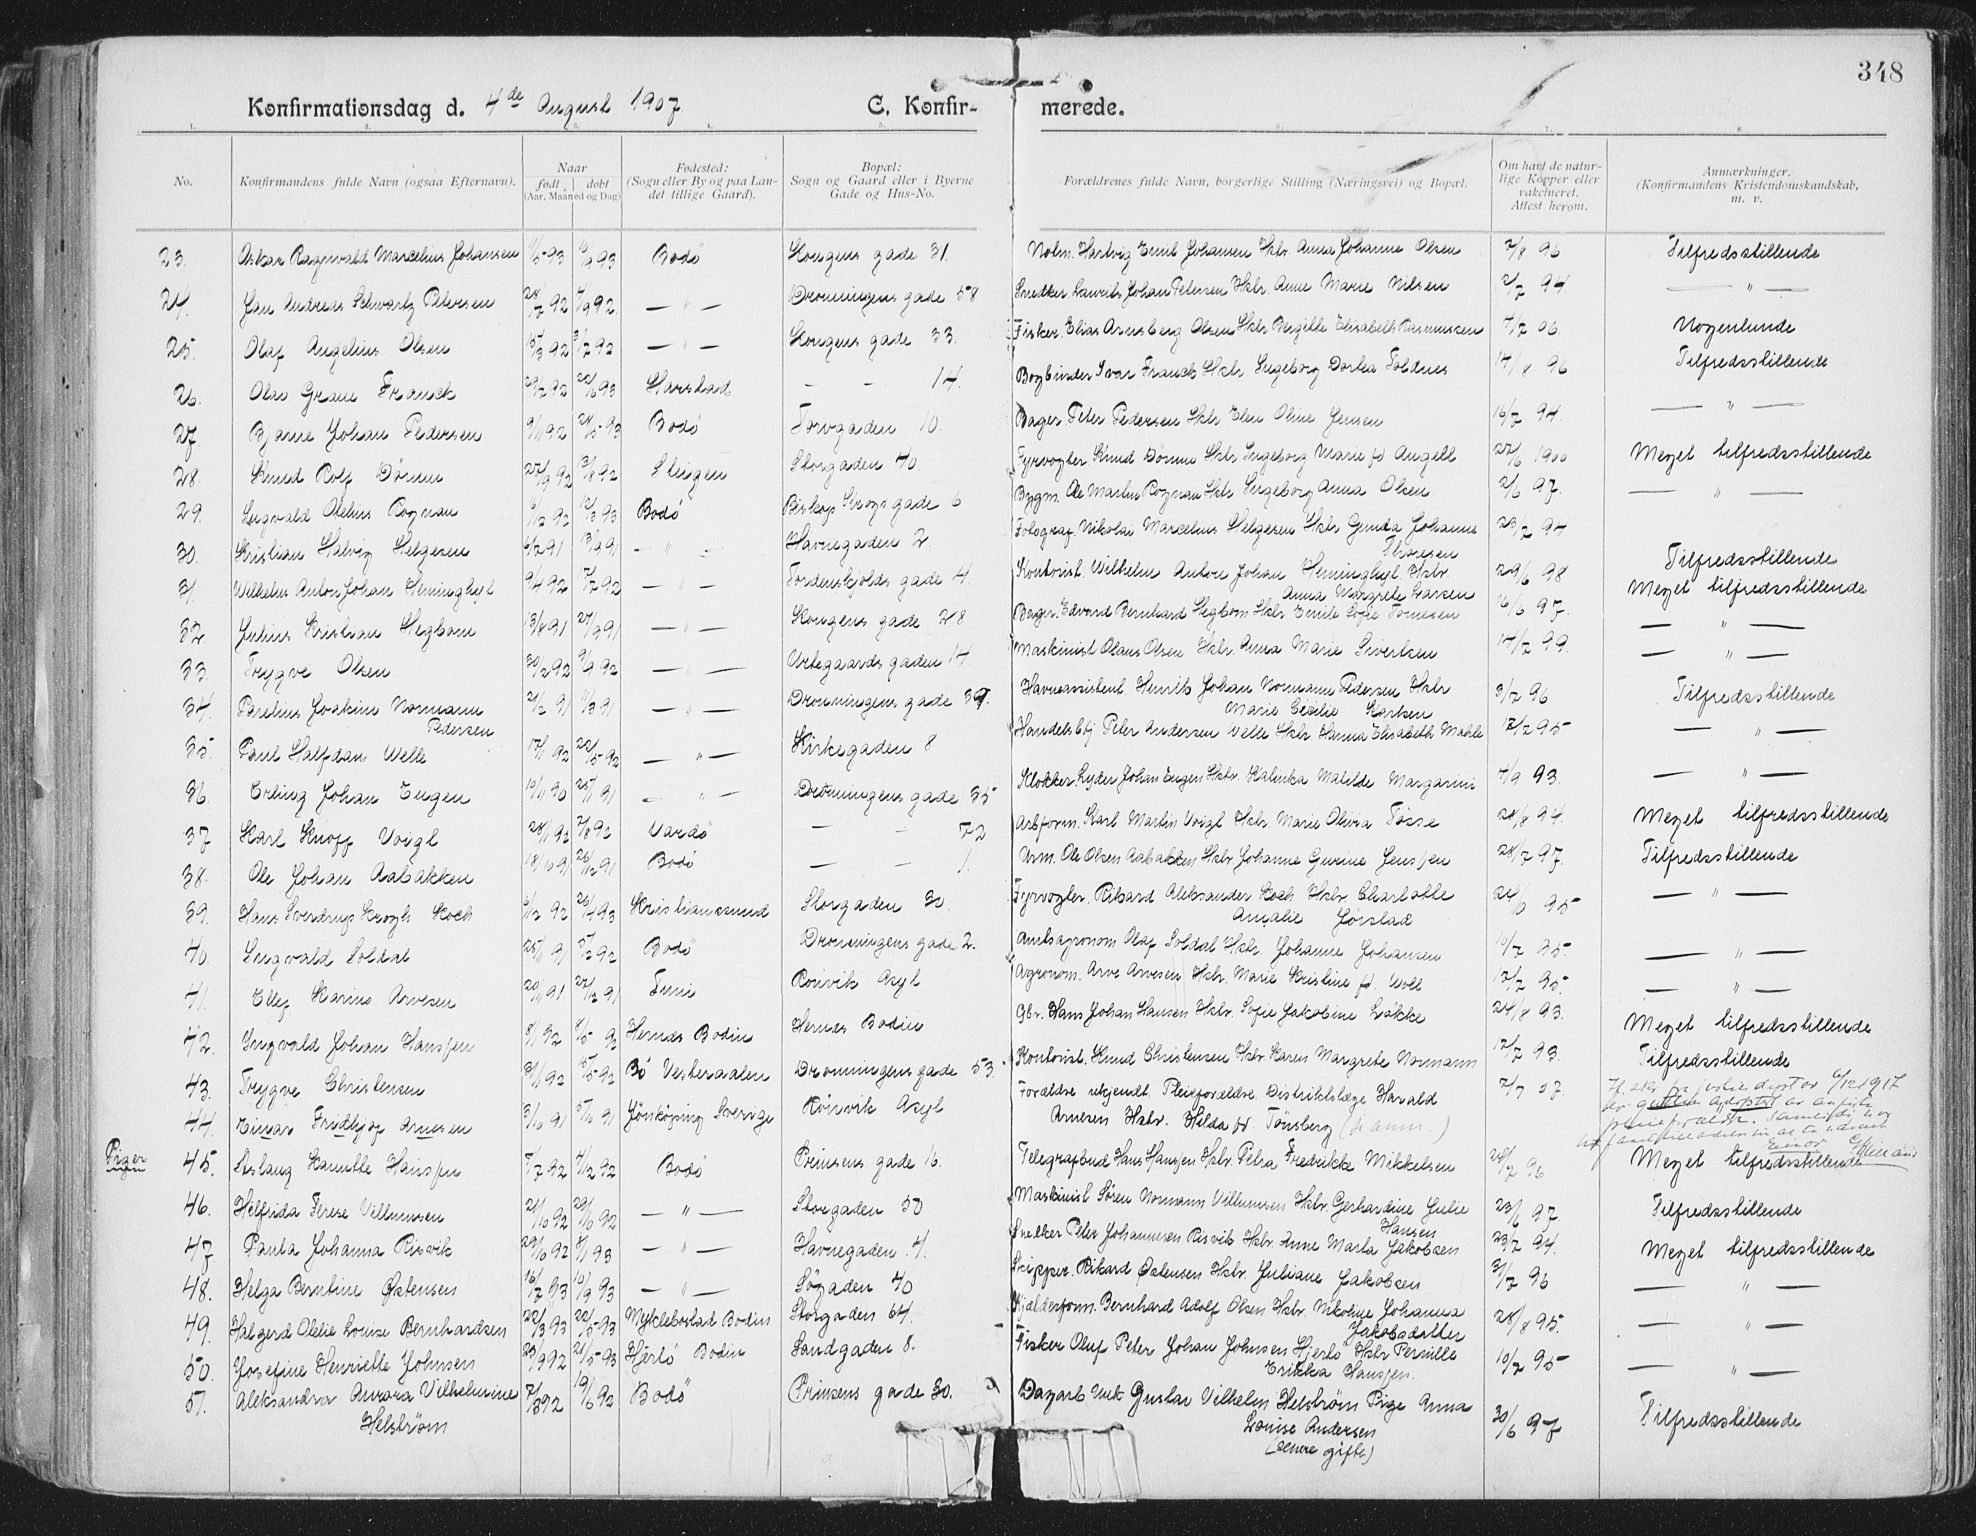 348
Konfirmationsdag d. 4de August 1907 C. Konfirmerede.
1. 2. 3. 4. 5. 6. 7. 8.
No. Konfirmandens fulde Navn (ogsaa Efternavn). Naar født | døbt (Aar, Maaned og Dag) Fødested: (Sogn eller By og paa Landet tillige Gaard). Bopæl: Sogn og Gaard eller i Byerne Gade og Hus-No. Forældrenes fulde Navn, borgerlige Stilling (Næringsvei) og Bopæl. Om havt de naturlige Kopper eller vakcineret. Attest herom. Anmærkninger. (Konfirmandens Kristendomskundskab, m. v.
23. Oskar Ragnvald Marcelius Johansen 11/5 93 10/9 93 Bodö Kongens gade 31. Hartvig Emil Johansen Hstr. Anna Johanne Olsen 7/8 96 Tilfredsstillende
24. Jan Andreas Schwartz Petersen 28/7 92 4/9 92 — " — Dronningens gade 58 Snedker Lauritz Johan Petersen Hstr. Anne Marie Nilsen 2/7 94 — " —
25. Olaf Angelius Olsen 15/3 92 3/7 92 — " — Kongens gade 33. Fisker. Elias Arnsberg Olsen Hstr Bergitte Elisabeth Rasmussen 4/7 06. Nogenlunde
26. Olav Franck 29/2 92 22/6 93 Harstad — — 14. Bogbinder Ivar Franck Hstr. Ingeborg Dortea Foldnes 14/8 96 Tilfredsstillende
27 Bjarne Johan Pedersen 9/11 92 28/5 93 Bodö Torvgaden 10. Bager Peter Pedersen Hstr Elen Oline Jensen 16/7 94. — " —
28. Knud Rolf Dönnu Steigen Storgaden 40 Fyrvogter. Knud Dönnu Hstr Ingeborg Marie fd Angell 22/6 1900 Meget tilfredsstillende
29. Ingvald Rognan 6/12 92 12/3 93 Bodö Biskop Krogs gade 6 Bygm. Ole Martin Rognan Hstr Ingeborg Anna Olsen 2/6 97. — " —
30. Kristian Halvig Helgesen 4/7 91 13/9 91 — " — Havnegaden 2. Fotograf. Nikolai Marcelius Helgesen Hstr Gunda Johanne 23/7 94
Thoresen Tilfredsstillende
31. Wilhelm Anton Johan Heminghyt 9/4 92 — " — Tordenskjolds gade 4. Kontorist. Wilhelm Anton Johan Heminghyt. Hstr. 29/6 98 Meget tilfredsstillende
Anna Margrete Larsen
32. Julius Kristian Hegbom 13/8 91 27/9 91 — " — Kongens gade 28 Bager. Edvard Bernhard Hegbom Hstr Emilie Sofie Tomesen 16/6 97. — " —
33. Trygve Olsen 30/7 92 9/9 92 — " — Urtegaards gaden 14 Maskinist Olaus Olsen Hstr. Anna Marie Sivertsen 14/7 99. — " —
34. Parelius Joakim Normann — " — Dronningens gade 39. Havneassistent. Henrik Johan Normann Pedersen Hstr 3/7 96 Tilfredsstillende
Pedersen Marie Cecilie
35. Paul Halfdan Welle 17/1 92 22/5 92 — " — Kirkegaden 8 Handelsbtj Peter Andersen Velle Hstr Hanna Elisabeth 12/7 95 — " —
36. Erling Johan Eugen 10/11 90 25/1 91 — " — Dronningens gade 35 Klokker. Ryder Johan Eugen Hstr. Kalinka Matilde 4/9 93 — " —
37 Karl Knoff Voigt 28/1 92 7/8 92 Vardö — — 72 Arbform. Karl Martin Voigt Hstr Marie Olivia Tösse 28/8 94. Meget tilfredsstillende
38. Ole Johan Aabakken 18/10 91 26/12 91 Bodö — — 1. Urm. Ole Olsen Aabakken Hstr Johanne Gurine Jenssen 28/7 97. Tilfredsstillende
39. Hans Sverdrup Krogh Koch 6/12 92 20/4 93 Kristianssund Storgaden 30. Fyrvogter. Rikard Aleksander Koch Hstr. Charlotte — " —
Amalie Jörstad
40. Ingvald Soldal 25/11 91 5/2 92 Bodö Dronningens gade 2. Amtsagronom Olaf Soldal Hstr. Johanne Johansen 10/7 95. — " —
41. Ellef Karino Arvesen 20/11 91 27/12 91 Rönvik Asyl Agronom. Arve Arvesen Hstr. Marie Kristine fd. Woll 12/7 95. — " —
42. Ingvald Johan Hanssen 8/1 92 8/5 92 Hernes Bodin Hernes Bodin Gbr. Hans Johan Hansen Hstr. Sofie Jakobine Løkke 24/8 93. Meget tilfredsstillende
43. Trygve Christensen 21/1 92 15/5 92 Bö Vesteraalen Dronningens gade 53. Kontorist. Knud Christensen Hstr Karen Margrete Normann 12/7 93. Tilfredsstillende
44. Einar Fridtjof Arnesen 3/10 91 5/10 91 Jönköping Sverige Rönvik Asyl Forældre ukjendt. Pleieforældre. Distriktslæge Harald 2/7 07.
Arnesen Hstr. Hilda fd. Tönsberg
6/12 1917
adopted av
Samtidig
Einar
Piger
45. Aslaug Kamilla Hanssen 5/7 92 4/12 92 Bodö Prinsens gade 16. Telegrafbud Hans Hanssen Hstr. Petra Fredrikke Mikkelsen 20/2 96 Meget tilfredsstillende
46. Helfrida Terese Villumsen 21/10 92 29/10 92 — " — Storgaden 50 Maskinist Sören Normann Villumsen Hstr. Gerhardine Julie 23/6 97 Tilfredsstillende
Hansen
47 Paula Johanna Risvik 29/10 92 8/1 93 — " — Havnegaden 4. Snedker Peter Johannesen Risvik Hstr. Anne Marta Jakobsen 23/7 94. Meget tilfredsstillende
48. Helga Berntine Østensen 16/7 93 10/9 93 — " — Søgaden 40 Skipper. Rikard Østensen Hstr. Juliane Jakobsen 3/7 96 — " —
49. Halgerd Otelie Louise Bernhardsen 22/3 93 22/5 93 Myklebostad Bodin Storgaden 64. Kjælderform. Bernhard Adolf Olsen Hstr Nikoline Johanna 28/8 95. — " —
Jakobsdatter
50. Josefine Henriette Johnsen 23/9 92 21/5 93 Hjertö Bodin Sandgaden 8. Fisker Oluf Peter Johan Johnsen Hjertö Hstr Pernille 10/7 95 — " —
Erikka Hanssen.
51. Aleksandra Aurora Vilhelmine 7/3 92 19/6 92 Bodö Prinsens gade 30. Dagarb Unk Gustav Vilhelm Helströn Pige Anna 30/6 97 Tilfredsstillende
Helströn Louise Andersen
(senere gifte)